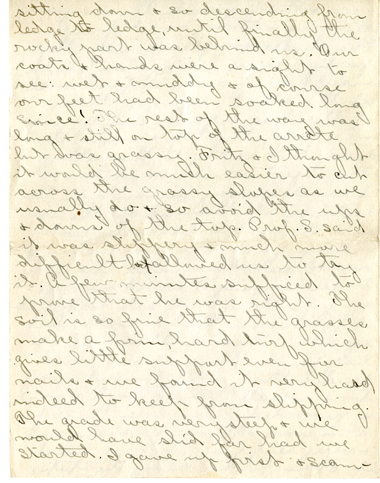 sitting down & so descending from
ledge to ledge, until finally the
rocky part was behind us. Our
coats & hands were a sight to
see: wet & muddy & of course
our feet had been soaked long
since! The rest of the way was
long & still on top of the arrete
but was grassy. Fritz & I thought
it would be much easier to cut
across the grassy slopes as we
usually do & so avoid the ups
& downs of the top. Prof. S. said
it was slippery & much more
difficult but allowed us to try
it. A few minutes sufficed to
prove that he was right. The
soil is so fine that the grasses
make a firm, hard turf which
gives little support even for
nails & we found it very hard
indeed to keep from slipping.
The grade was very steep & we
would have slid far had we
started. I gave up first & scam-